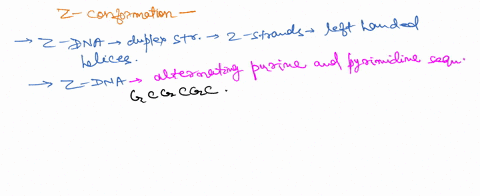 Z-conformation —
→ Z-DNA → duplex str. → 2-strands → left handed
helices.
→ Z-DNA → alternating purine and pyrimidine sequ.
GCGCGC.